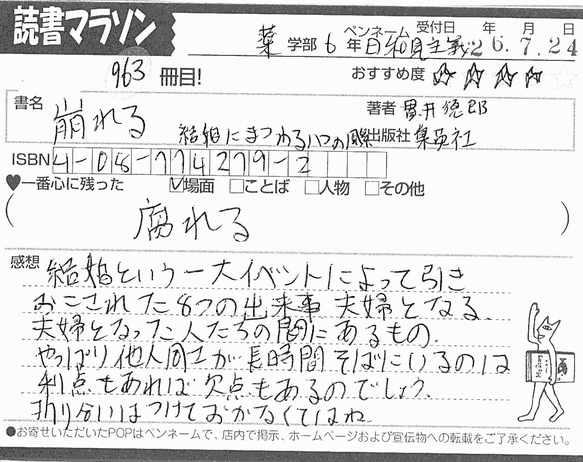 読書マラソン
薬 学部 6 年 ペンネーム 日和見主義 受付日 26. 年 7. 月 24 日
963 冊目! おすすめ度 ☆☆☆☆☆
書名 崩れる 結婚にまつわる八つの風景
著者 貫井徳郎
出版社 集英社
ISBN 4-08-774279-2
♥一番心に残った ☑場面 □ことば □人物 □その他
( 腐れる )
感想 結婚という一大イベントによって引き
おこされた8つの出来事 夫婦となる、
夫婦となった人たちの間にあるもの。
やっぱり他人同士が長時間そばにいるのは
利点もあれば欠点もあるのでしょう。
折り合いはつけておかなくてはね。
●お寄せいただいたPOPはペンネームで、店内で掲示、ホームページおよび宣伝物への転載をご了承ください。